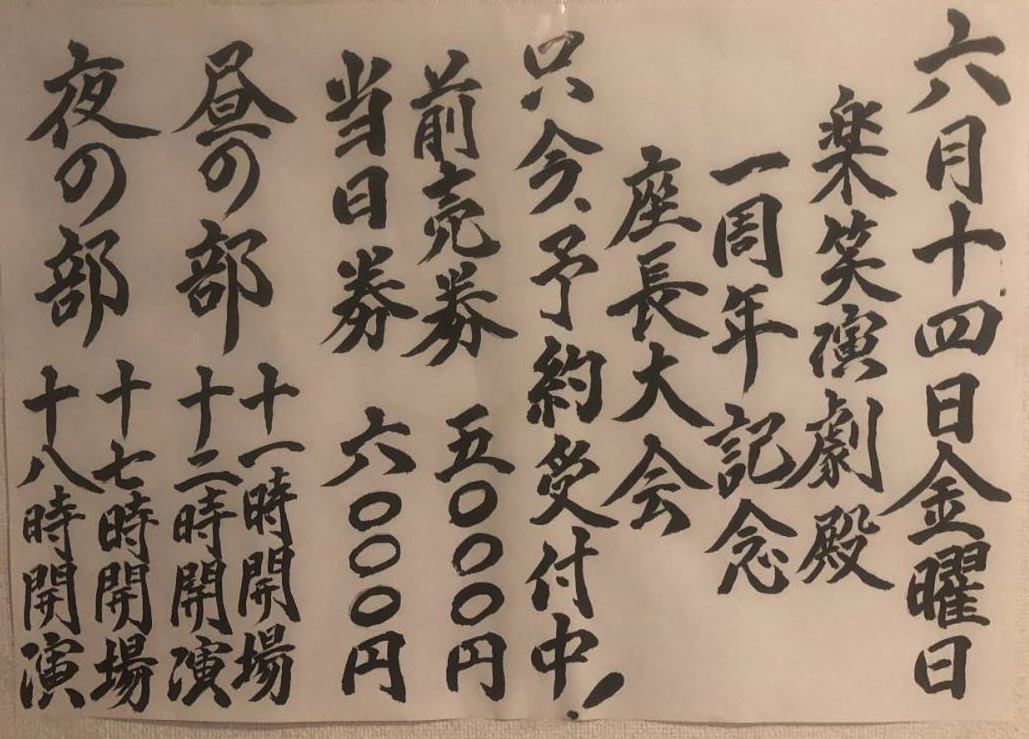 六月十四日金曜日
楽笑演劇殿
一周年記念
座長大会
只今、予約受付中!
前売券 五〇〇〇円
当日券 六〇〇〇円
昼の部 十一時開場
十二時開演
夜の部 十七時開場
十八時開演